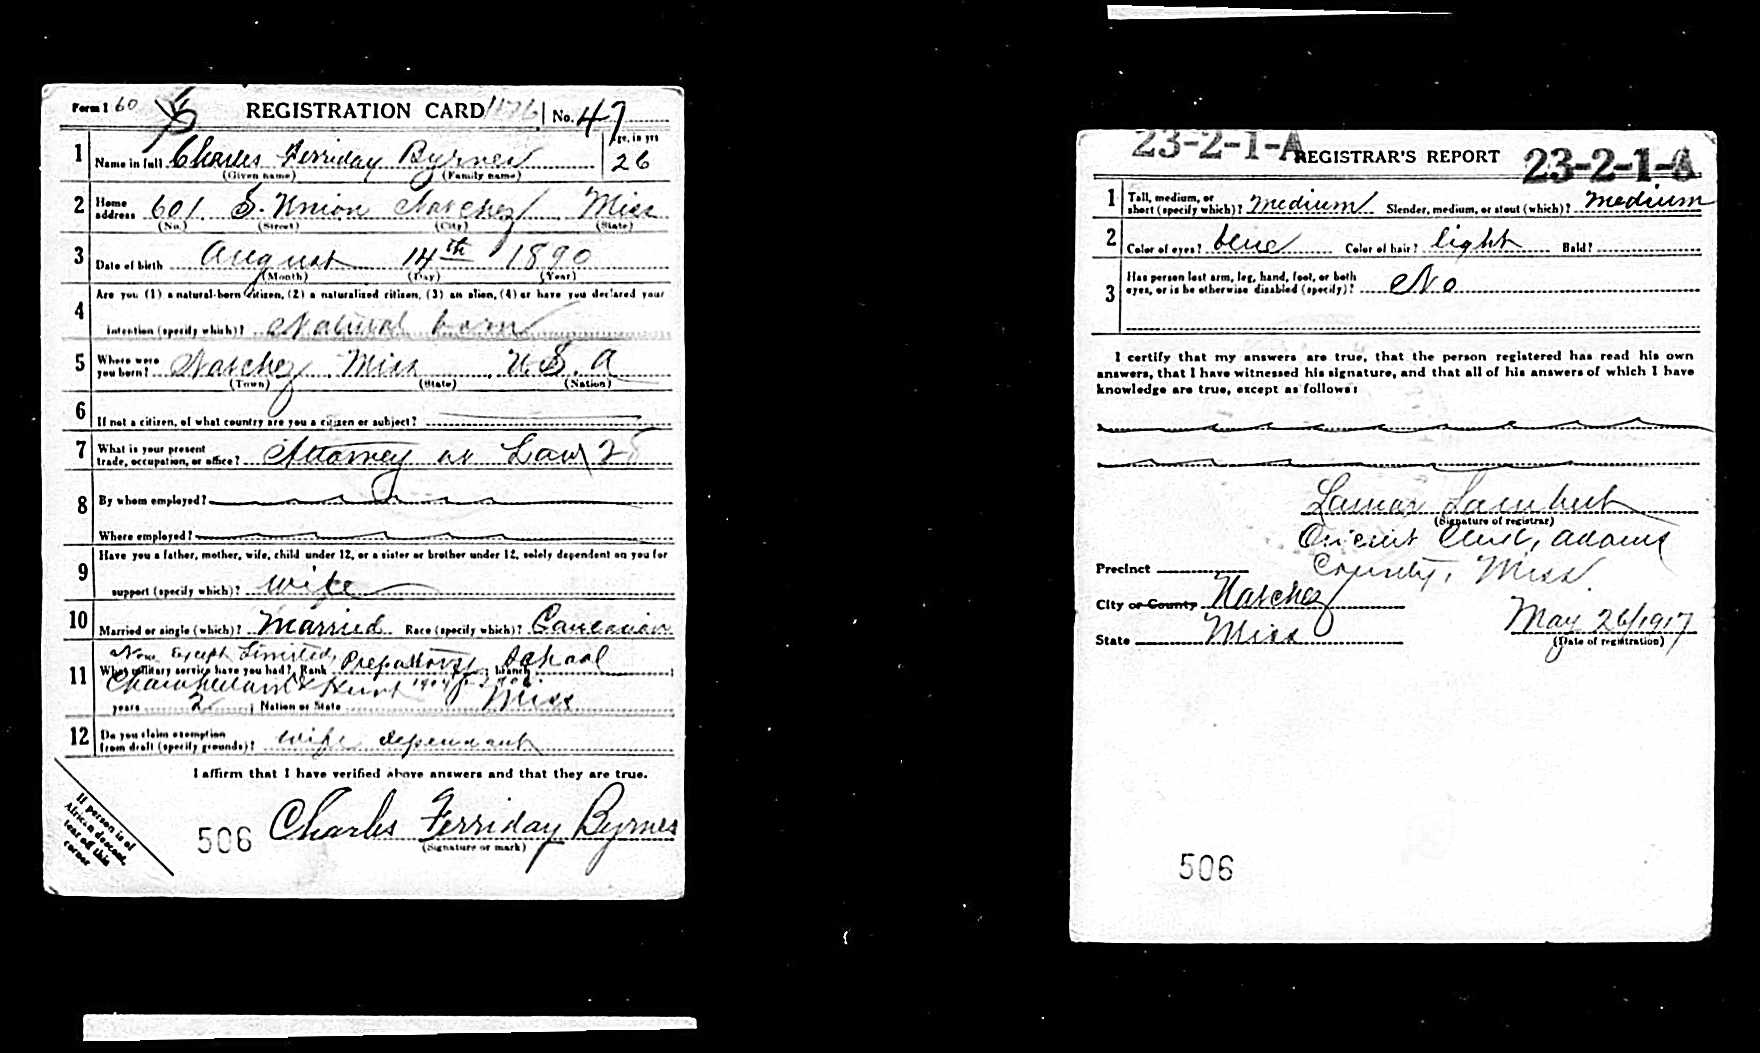 Form 1 60 REGISTRATION CARD 1176 No. 47
1 Name in full Charles Ferriday Byrnes Age, in yrs
(Given name) (Family name) 26
2 Home address 601 S. Union Natchez Miss
(No.) (Street) (City) (State)
3 Date of birth August 14th 1890
(Month) (Day) (Year)
4 Are you (1) a natural-born citizen, (2) a naturalized citizen, (3) an alien, (4) or have you declared your
intention (specify which)? Natural born
5 Where were you born? Natchez Miss U.S.A
(Town) (State) (Nation)
6 If not a citizen, of what country are you a citizen or subject?
7 What is your present trade, occupation, or office? Attorney at Law 2
8 By whom employed?
Where employed?
9 Have you a father, mother, wife, child under 12, or a sister or brother under 12, solely dependent on you for
support (specify which)? wife
10 Married or single (which)? Married Race (specify which)? Caucasian
Except Limited,
11 What military service have you had? Rank Prepatory ; branch School
Chamberlain Hunt
years 2 ; Nation or State Miss
12 Do you claim exemption from draft (specify grounds)? wife dependant
I affirm that I have verified above answers and that they are true.
506 Charles Ferriday Byrnes
(Signature or mark)
If person is of
African descent,
tear off this
corner
23-2-1-A REGISTRAR'S REPORT 23-2-1-A
1 Tall, medium, or short (specify which)? medium Slender, medium, or stout (which)? medium
2 Color of eyes? blue Color of hair? light Bald?
3 Has person lost arm, leg, hand, foot, or both eyes, or is he otherwise disabled (specify)? No
I certify that my answers are true, that the person registered has read his own
answers, that I have witnessed his signature, and that all of his answers of which I have
knowledge are true, except as follows:
Lamar Lambert
(Signature of registrar)
Circuit Clerk, Adams
Precinct County, Miss
City or County Natchez
State Miss May 26/1917
(Date of registration)
506